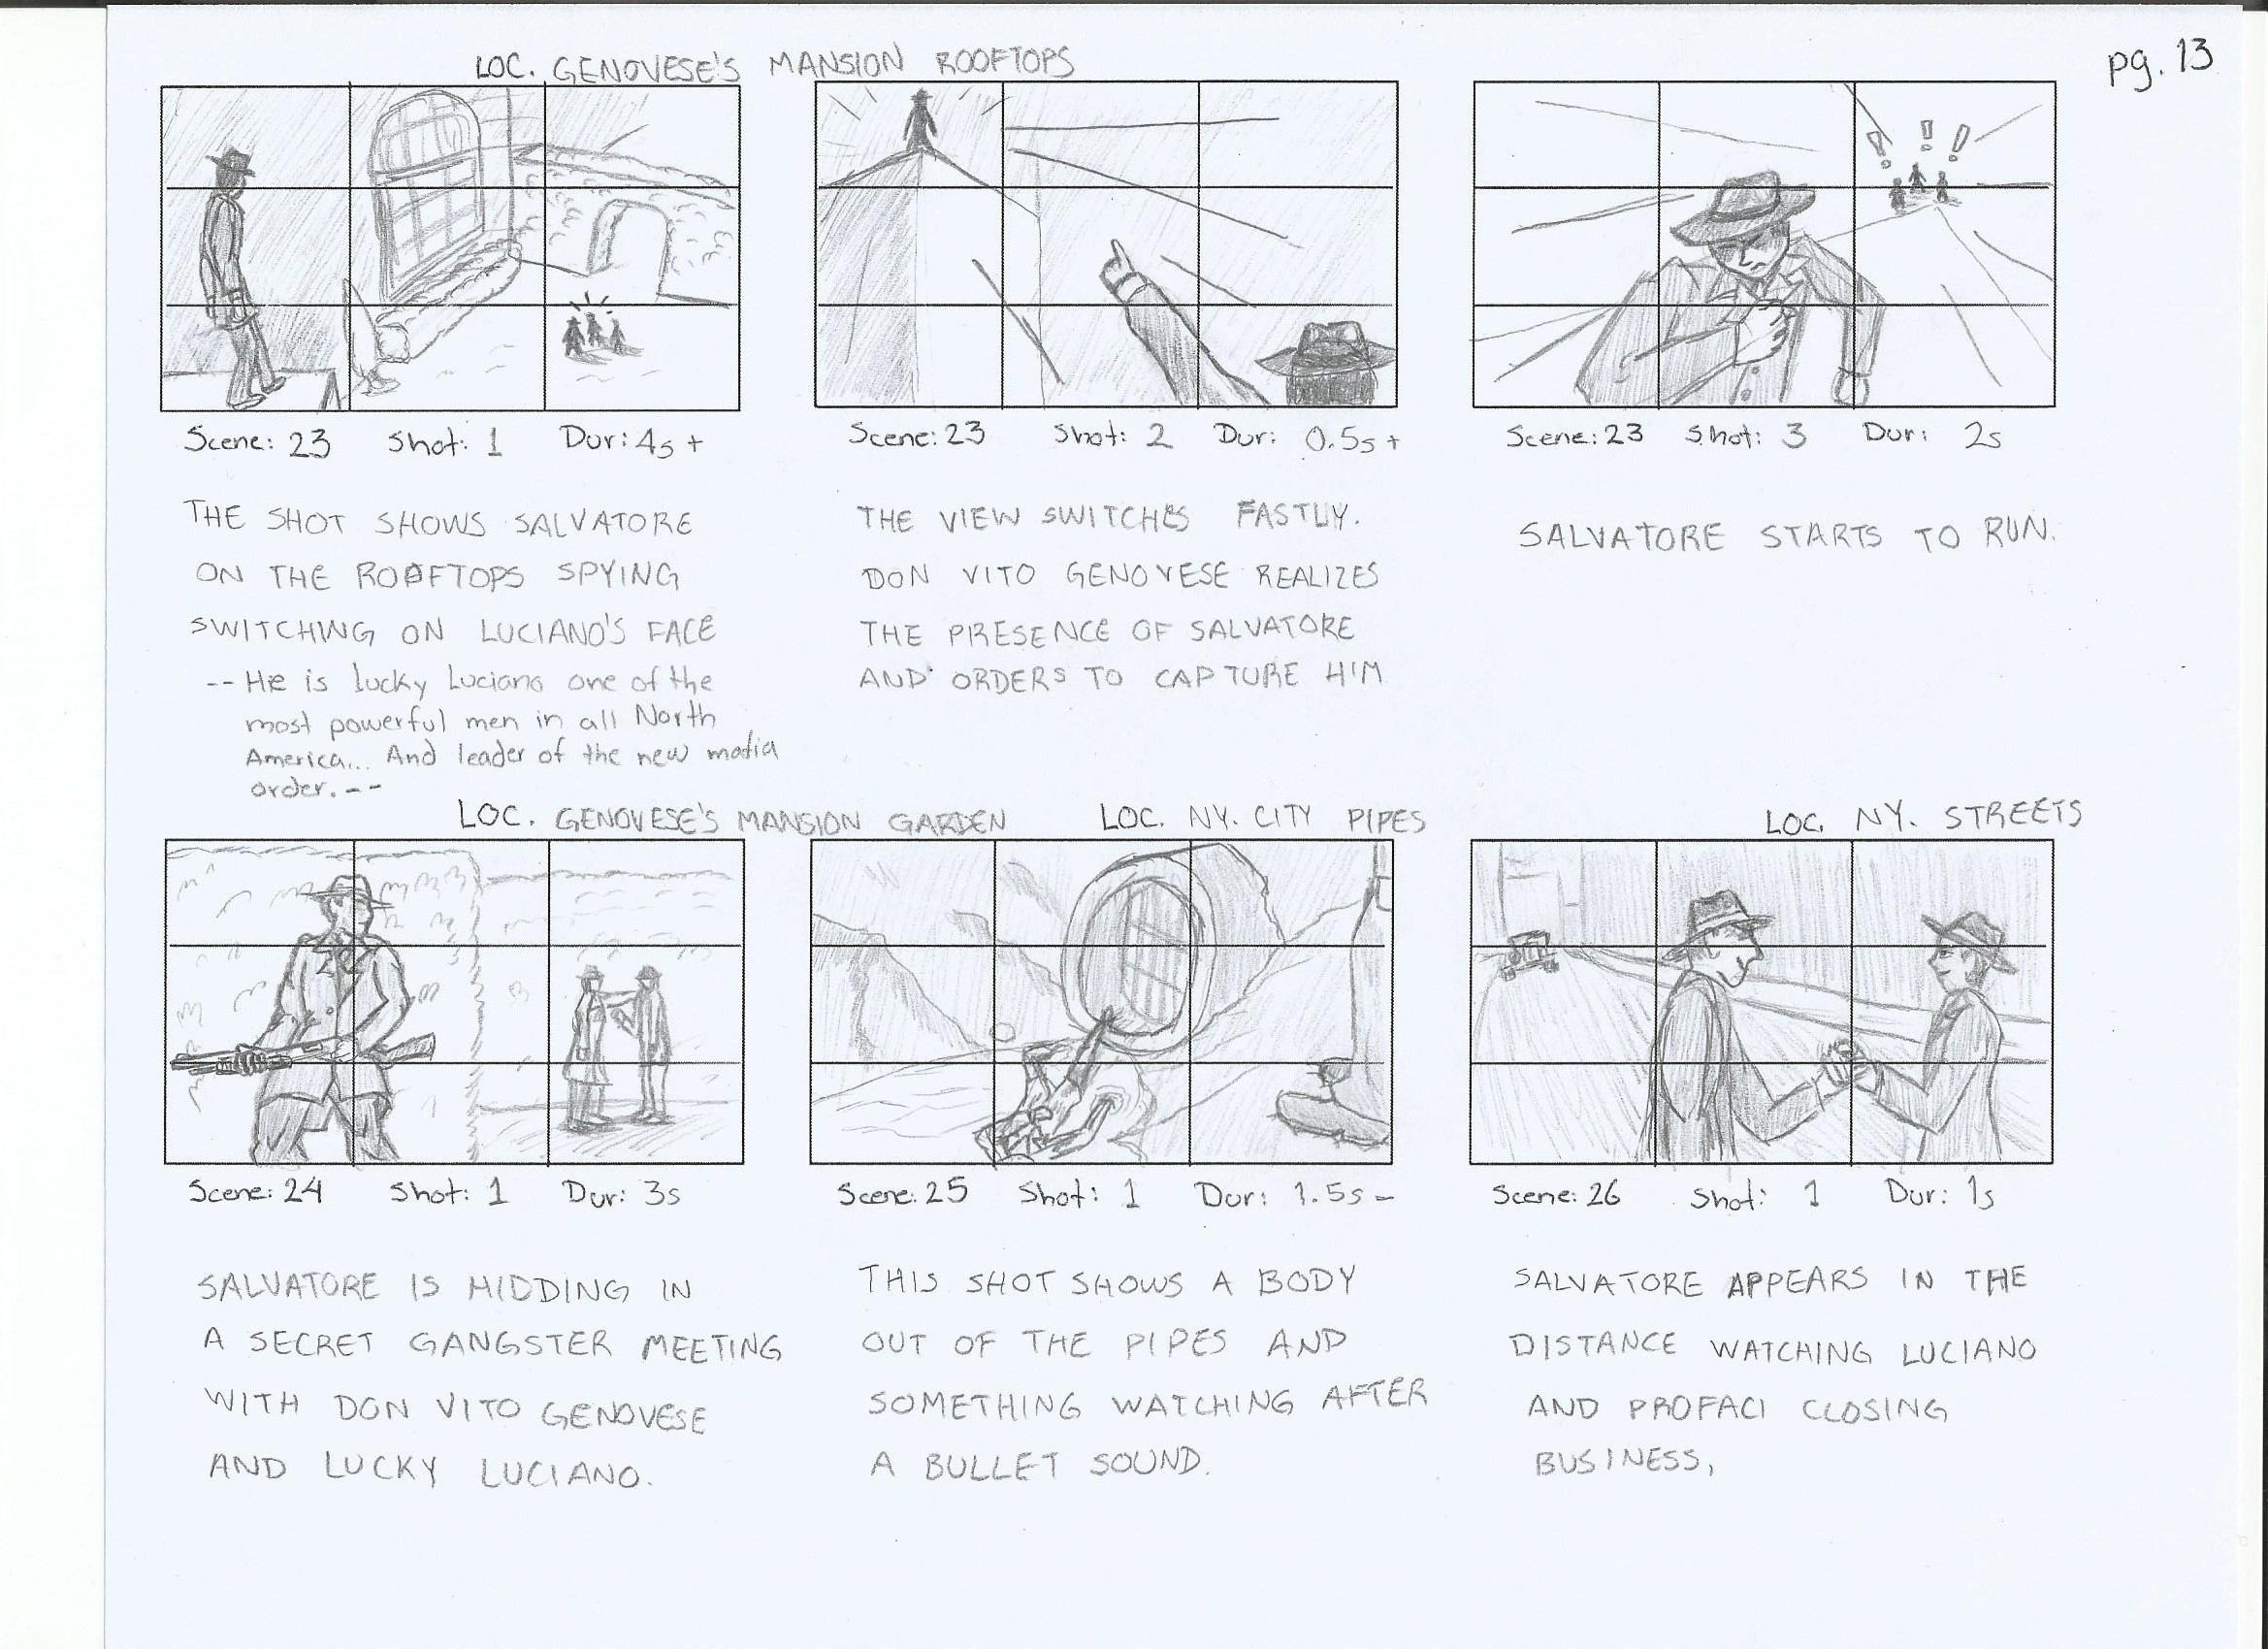 pg. 13
LOC. GENOVESE'S MANSION ROOFTOPS
Scene: 23 Shot: 1 Dur: 4s +
THE SHOT SHOWS SALVATORE
ON THE ROOFTOPS SPYING
SWITCHING ON LUCIANO'S FACE
-- He is lucky Luciano one of the
most powerful men in all North
America... And leader of the new mafia
order. --
Scene: 23 Shot: 2 Dur: 0.5s +
THE VIEW SWITCHES FASTLY.
DON VITO GENOVESE REALIZES
THE PRESENCE OF SALVATORE
AND ORDERS TO CAPTURE HIM
! ! !
Scene: 23 Shot: 3 Dur: 2s
SALVATORE STARTS TO RUN.
LOC. GENOVESE'S MANSION GARDEN
Scene: 24 Shot: 1 Dur: 3s
SALVATORE IS HIDDING IN
A SECRET GANGSTER MEETING
WITH DON VITO GENOVESE
AND LUCKY LUCIANO.
LOC. NY. CITY PIPES
Scene: 25 Shot: 1 Dur: 1.5s -
THIS SHOT SHOWS A BODY
OUT OF THE PIPES AND
SOMETHING WATCHING AFTER
A BULLET SOUND.
LOC. NY. STREETS
Scene: 26 Shot: 1 Dur: 1s
SALVATORE APPEARS IN THE
DISTANCE WATCHING LUCIANO
AND PROFACI CLOSING
BUSINESS,